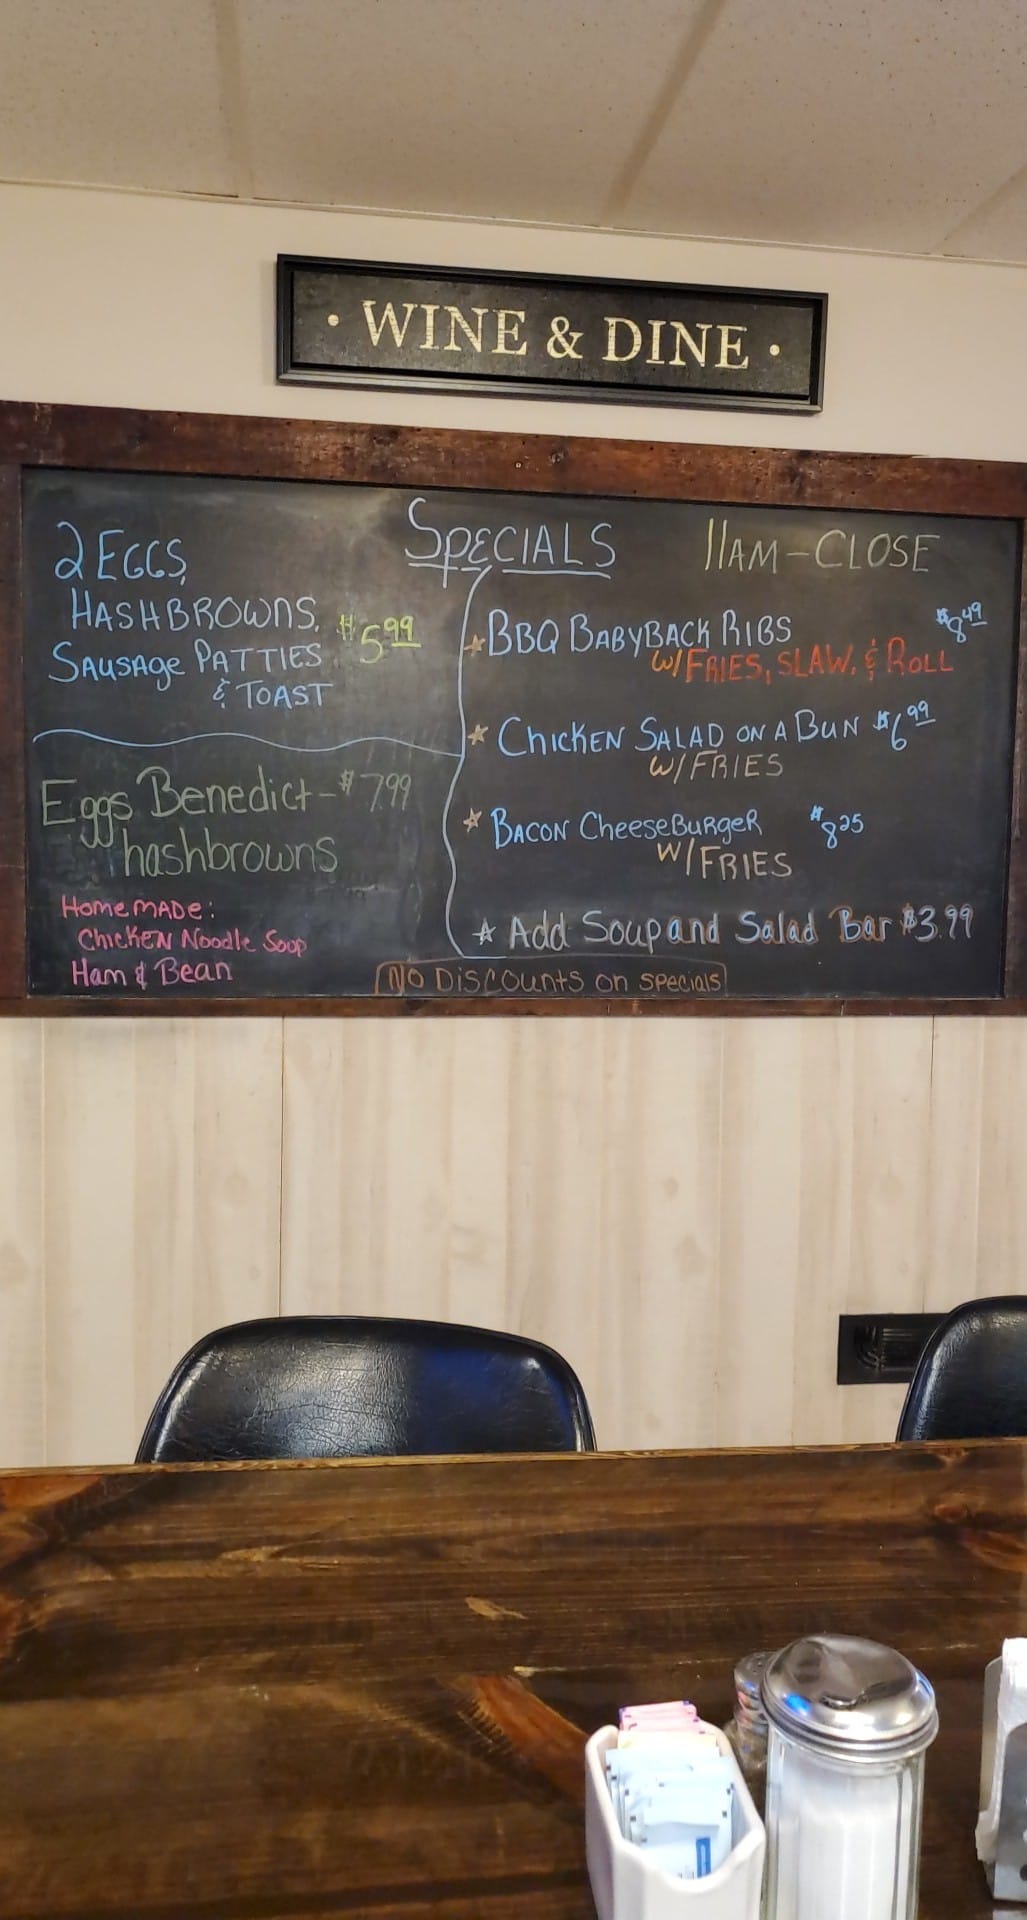 · WINE & DINE ·
SPECIALS
2 EGGS,
HASHBROWNS, $5.99
SAUSAGE PATTIES
& TOAST
Eggs Benedict - $7.99
hashbrowns
HOMEMADE:
CHICKEN Noodle Soup
Ham & Bean
11AM - CLOSE
BBQ BABYBACK RIBS $8.49
W/FRIES, SLAW, & ROLL
CHICKEN SALAD ON A BUN $6.99
W/FRIES
BACON CHEESEBURGER $8.25
W/FRIES
Add Soup and Salad Bar $3.99
NO DISCOUNTS on specials